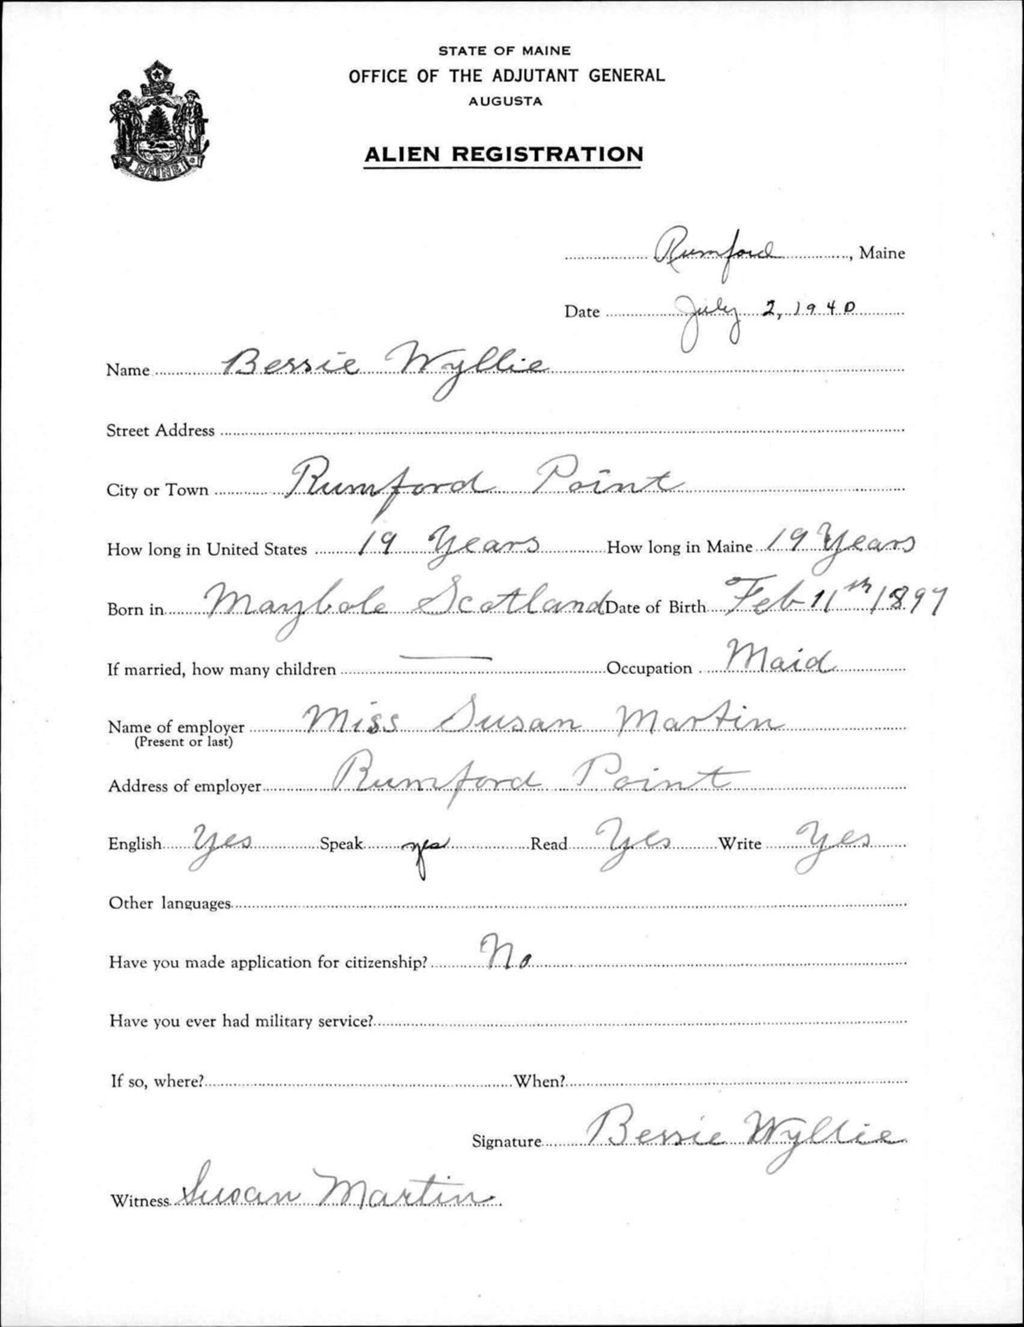 STATE OF MAINE
OFFICE OF THE ADJUTANT GENERAL
AUGUSTA
ALIEN REGISTRATION
MAINE
Rumford, Maine
Date July 2, 1940
Name Bessie Wyllie
Street Address
City or Town Rumford Point
How long in United States 19 Years How long in Maine 19 Years
Born in Maybole Scotland Date of Birth Feb 11th 1897
If married, how many children — Occupation Maid
Name of employer Miss Susan Martin
(Present or last)
Address of employer Rumford Point
English Yes Speak yes Read Yes Write Yes
Other languages
Have you made application for citizenship? No
Have you ever had military service?
If so, where? When?
Signature Bessie Wyllie
Witness Susan Martin